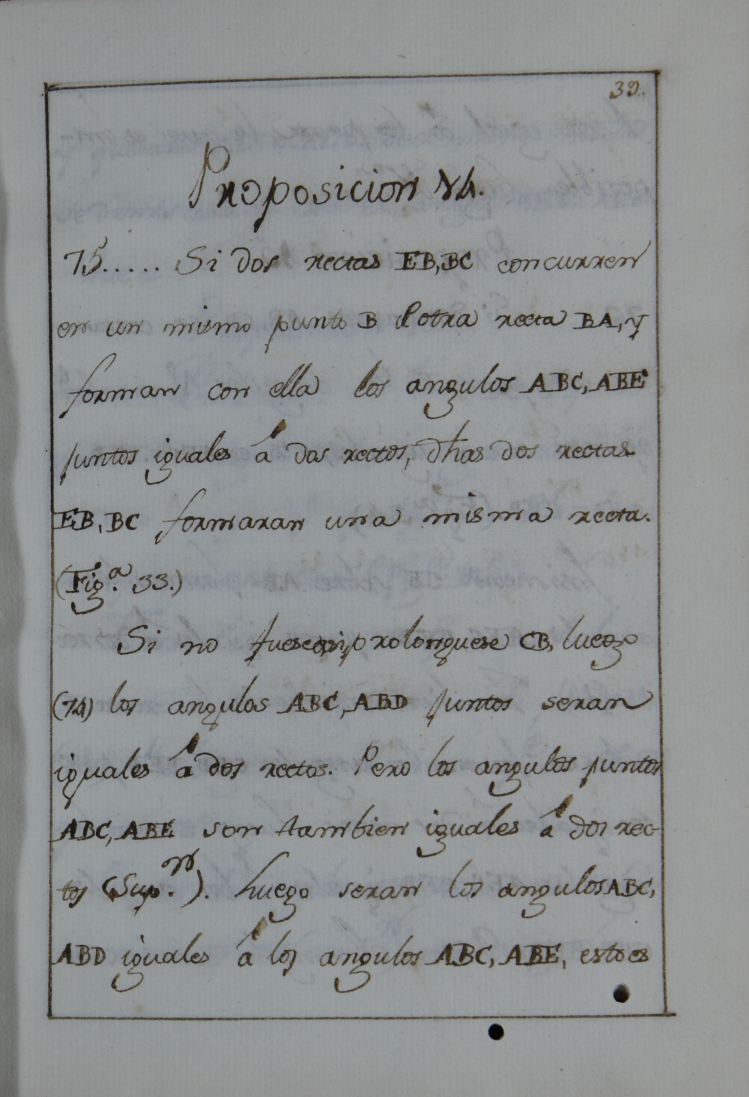 39.
Proposicion VI.
75..... Si dos rectas EB, BC concurren
en un mismo punto B d otra recta BA, y
forman con ella los angulos ABC, ABE
juntos iguales á dos rectos, dhas dos rectas
EB, BC formaran una misma recta.
(Fig.ª 33.)
Si no fuese prolonguese CB, luego
(74) los angulos ABC, ABD juntos seran
iguales á dos rectos. Pero los angulos juntos
ABC, ABE son tambien iguales á dos rec-
tos (Sup.n). Luego seran los angulos ABC,
ABD iguales á los angulos ABC, ABE, esto es